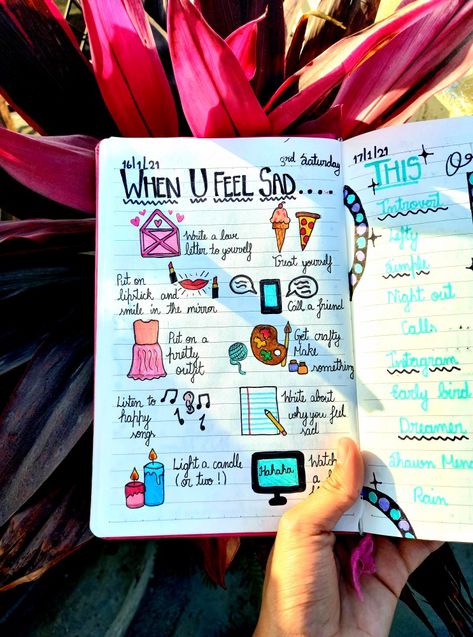 16/1/21
3rd Saturday
WHEN U FEEL SAD.....
Write a love
letter to yourself
Treat yourself
Put on
lipstick and
smile in the mirror
Call a friend
Put on a
pretty
outfit
Get crafty
Make
something
Listen to
happy
songs
Write about
why you feel
sad
Light a candle
(or two!)
Hahaha.
Watch
a
17/1/21
THIS
Introvert
Lefty
Simple
Night out
Calls
Instagram
Early bird
Dreamer
Shawn Men
Rain